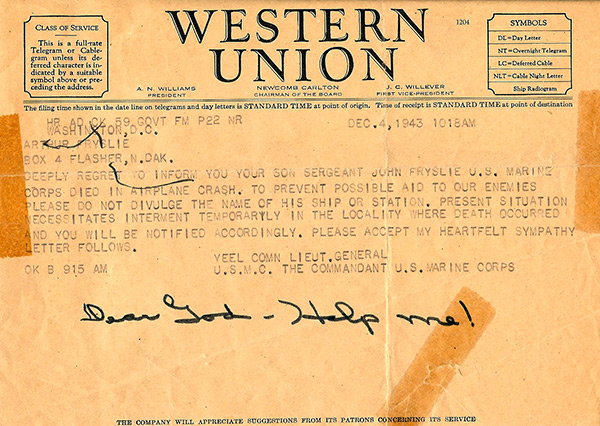 CLASS OF SERVICE
This is a full-rate
Telegram or Cable-
gram unless its de-
ferred character is in-
dicated by a suitable
symbol above or pre-
ceding the address.
WESTERN
UNION
1204
SYMBOLS
DL=Day Letter
NT=Overnight Telegram
LC=Deferred Cable
NLT=Cable Night Letter
Ship Radiogram
A. N. WILLIAMS
PRESIDENT
NEWCOMB CARLTON
CHAIRMAN OF THE BOARD
J. C. WILLEVER
FIRST VICE-PRESIDENT
The filing time shown in the date line on telegrams and day letters is STANDARD TIME at point of origin. Time of receipt is STANDARD TIME at point of destination
HR AO CK 59 GOVT FM P22 NR
DEC.4,1943 1018AM
WASHINGTON,D.C.
ARTHUR FRYSLIE
BOX 4 FLASHER,N.DAK.
DEEPLY REGRET TO INFORM YOU YOUR SON SERGEANT JOHN FRYSLIE U.S. MARINE
CORPS DIED IN AIRPLANE CRASH. TO PREVENT POSSIBLE AID TO OUR ENEMIES
PLEASE DO NOT DIVULGE THE NAME OF HIS SHIP OR STATION. PRESENT SITUATION
NECESSITATES INTERMENT TEMPORARYLY IN THE LOCALITY WHERE DEATH OCCURRED
AND YOU WILL BE NOTIFIED ACCORDINGLY. PLEASE ACCEPT MY HEARTFELT SYMPATHY
LETTER FOLLOWS.
YEEL COMN LIEUT.GENERAL
OK B 915 AM
U.S.M.C. THE COMMANDANT U.S.MARINE CORPS
Dear God - Help me!
THE COMPANY WILL APPRECIATE SUGGESTIONS FROM ITS PATRONS CONCERNING ITS SERVICE